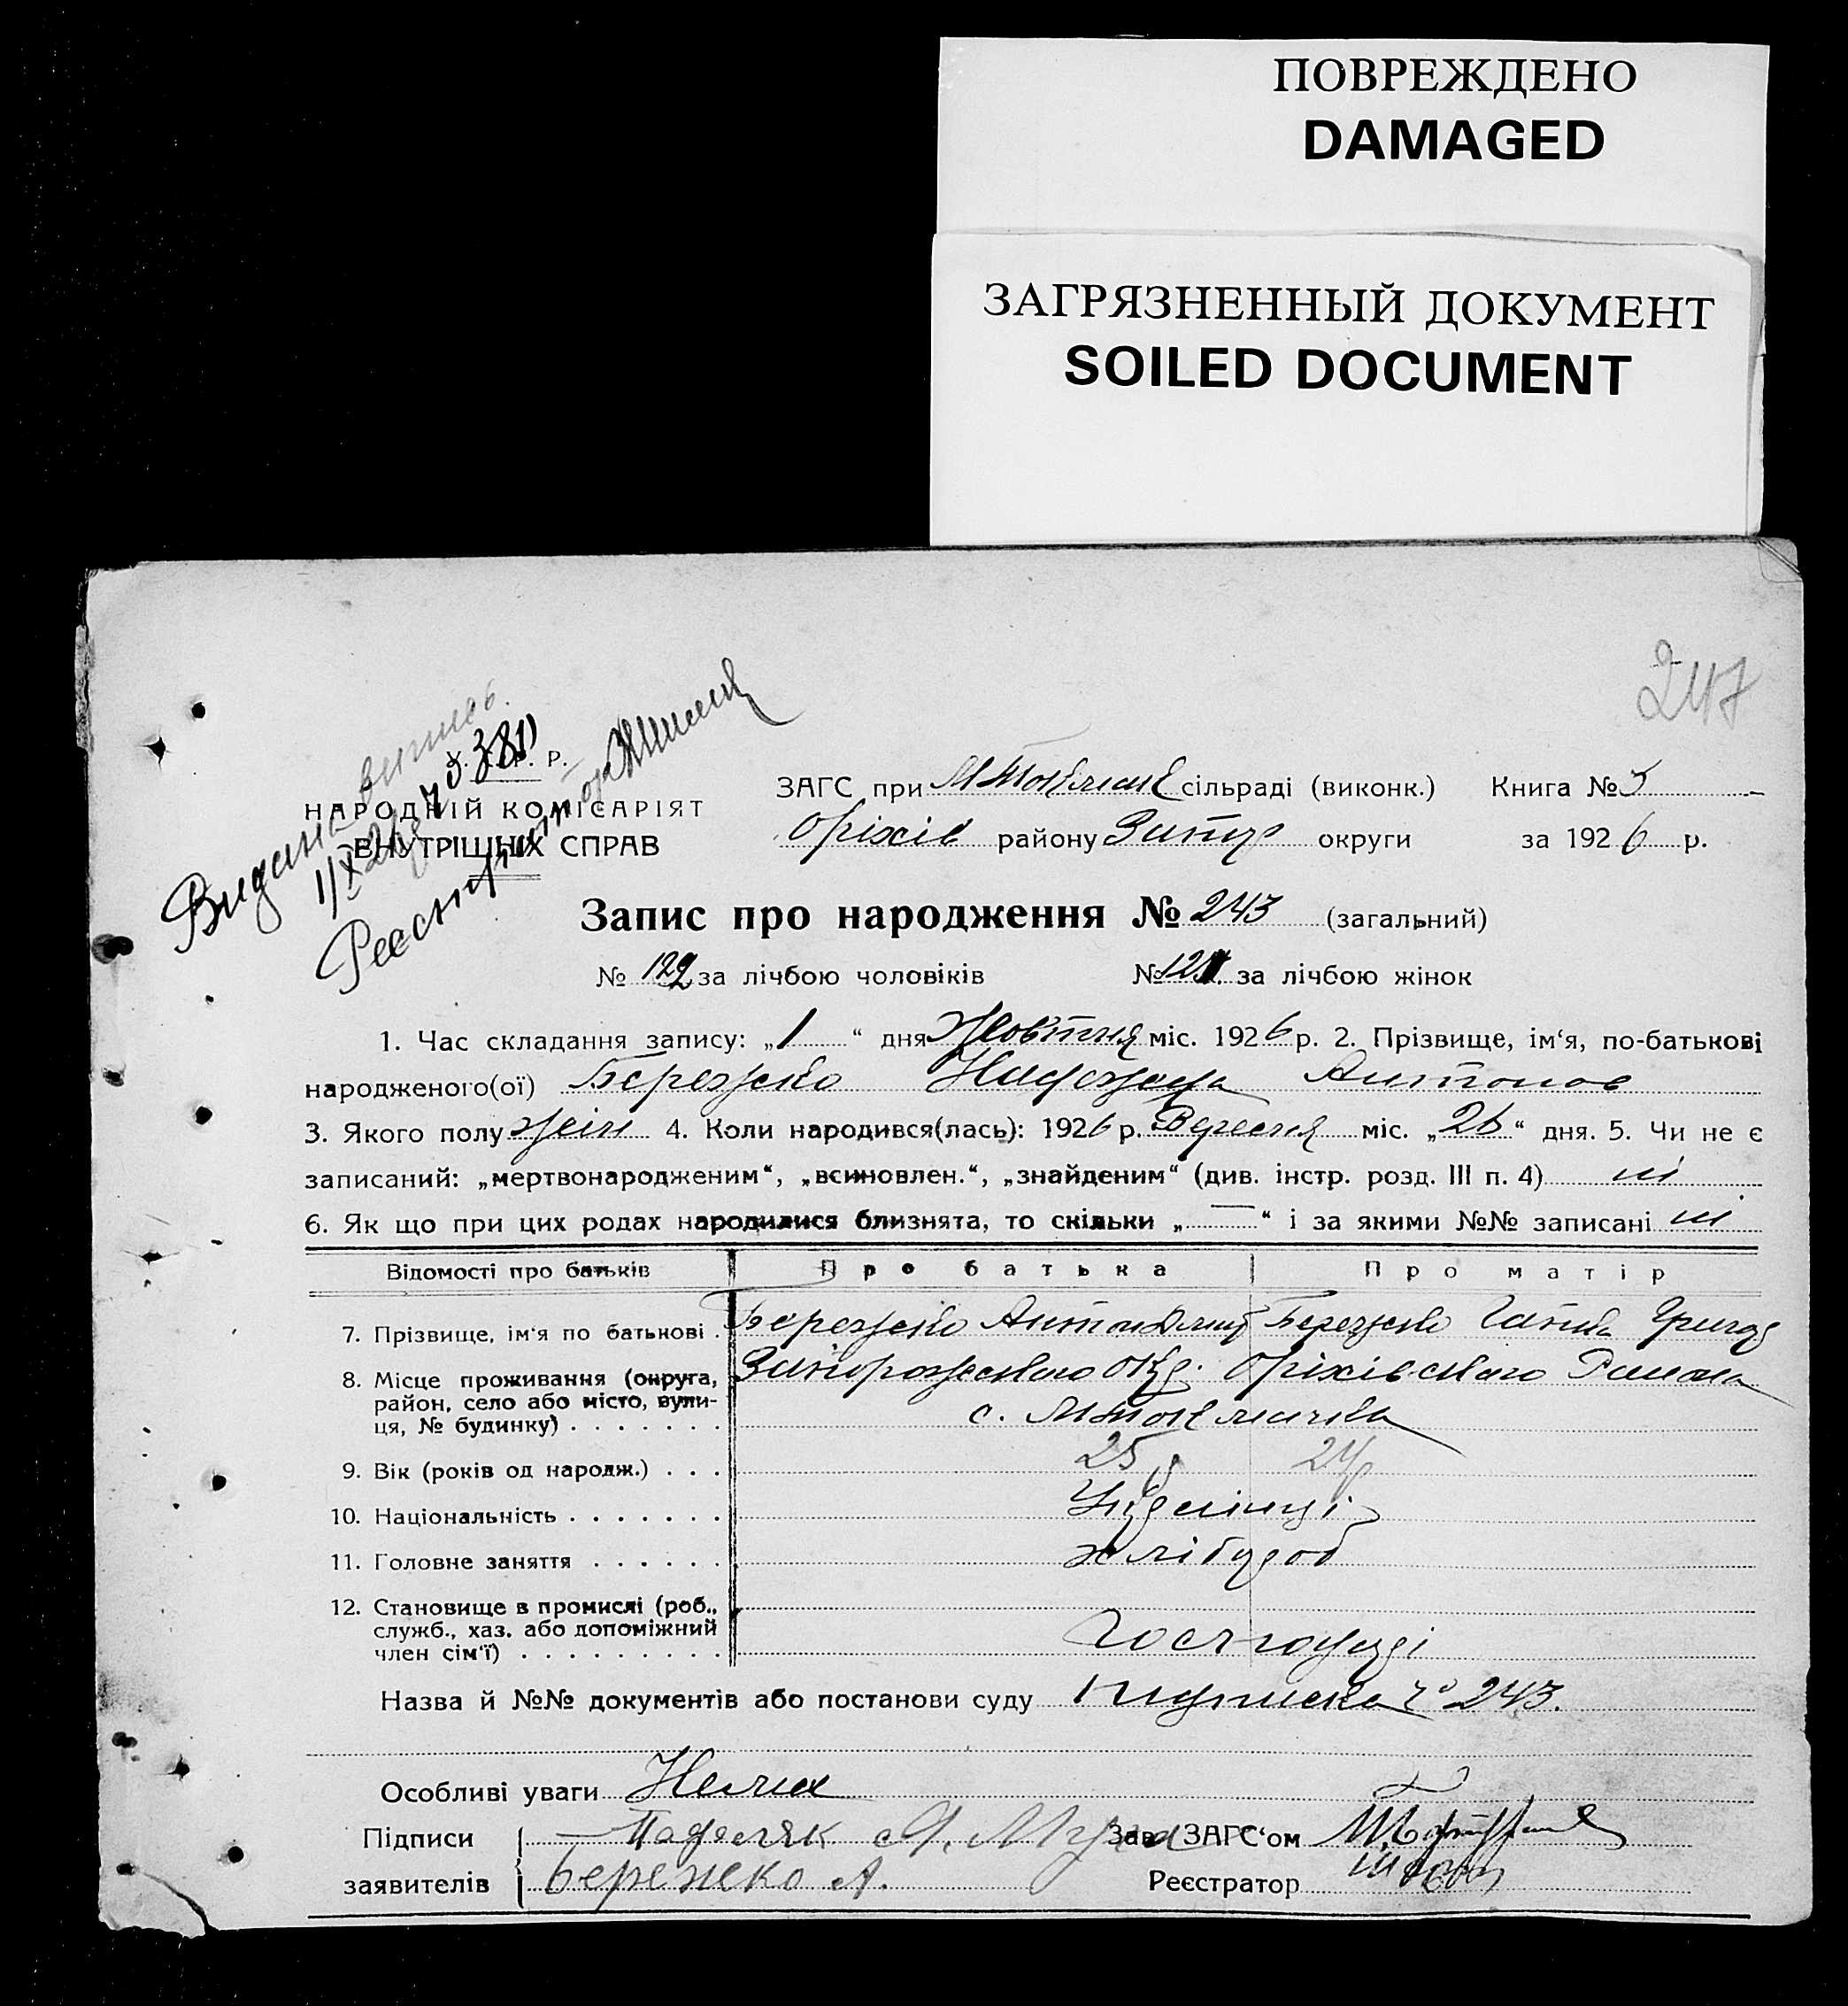 ПОВРЕЖДЕНО
DAMAGED
ЗАГРЯЗНЕННЫЙ ДОКУМЕНТ
SOILED DOCUMENT
247
Видана випись
1/X 26 р.
Реєстратор
Р.
НАРОДНІЙ КОМІСАРІЯТ
ВНУТРІШНІХ СПРАВ
ЗАГС при сільраді (виконк.) Книга № 3
Оріхів району Запор округи за 1926 р.
Запис про народження № 243 (загальний)
№ 122 за лічбою чоловіків № 121 за лічбою жінок
1. Час складання запису: „1“ дня Жовтня міс. 1926 р. 2. Прізвище, ім‘я, по-батькові
народженого(ої) Бережко Надежда Антонов
3. Якого полу жін 4. Коли народився(лась): 1926 р. Вересня міс. „26“ дня. 5. Чи не є
записаний: „мертвонародженим“, „всиновлен.“, „знайденим“ (див. інстр. розд. III п. 4) ні
6. Як що при цих родах народилися близнята, то скільки „—“ і за якими №№ записані ні
Відомості про батьків Про батька Про матір
7. Прізвище, ім‘я по батькові . Бережко Антон Дмит Бережко Гапка Григор
8. Місце проживання (округа, район, село або місто, вулиця, № будинку) . . . . . . . Запорожського Окр. Оріхівського Района
с.
9. Вік (років од народж.) . . . 25 р 24 р
10. Національність . . . . . . . Українці
11. Головне заняття . . . . . . хлібороб
12. Становище в промислі (роб., служб., хаз. або допоміжний член сім‘ї) . . . . . . . . . Господарі
Назва й №№ документів або постанови суду Підписка № 243.
Особливі уваги Нема
Підписи Зав. ЗАГС‘ом
заявителів Бережко А. Реєстратор